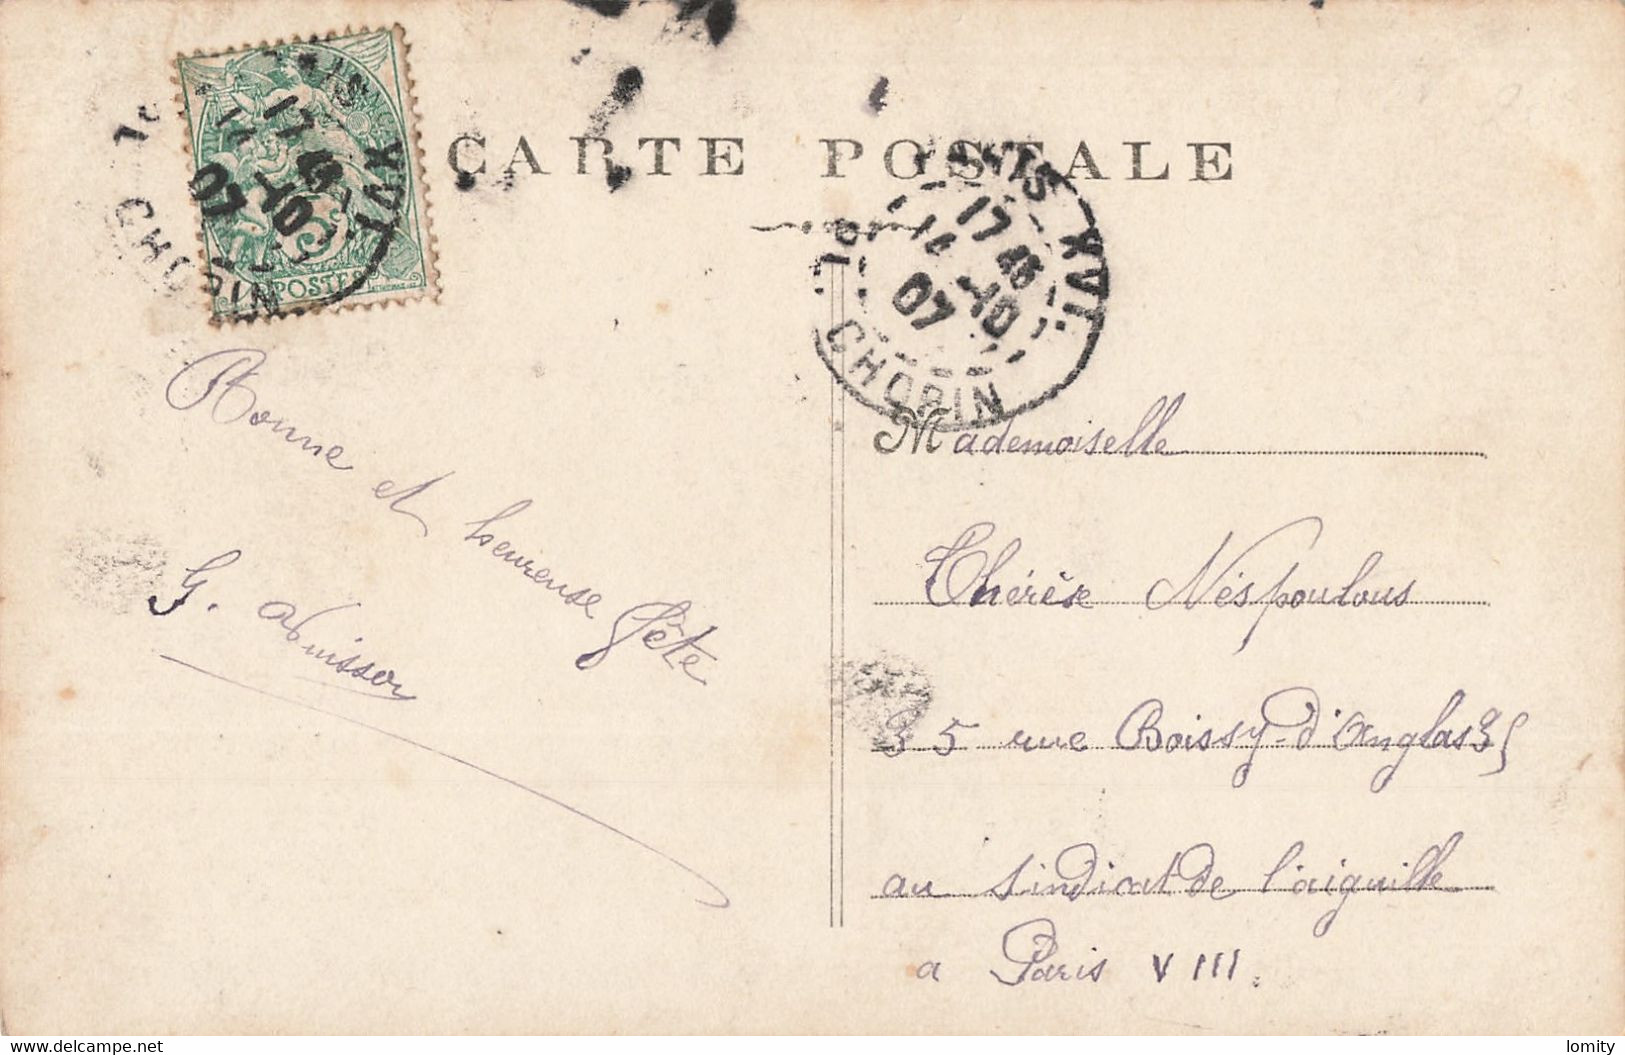 CARTE POSTALE
POSTES
PARIS XVI.
17 45
14 -10
07
PL. CHOPIN
PARIS XVI.
17 45
14 -10
07
PL. CHOPIN
Bonne et heureuse fête
G.
Mademoiselle
Thérèse Néspoulous
35 rue Boissy-d'Anglas 35
au Sindicat de l'aiguille
a Paris VIII.
delcampe.net
lomity